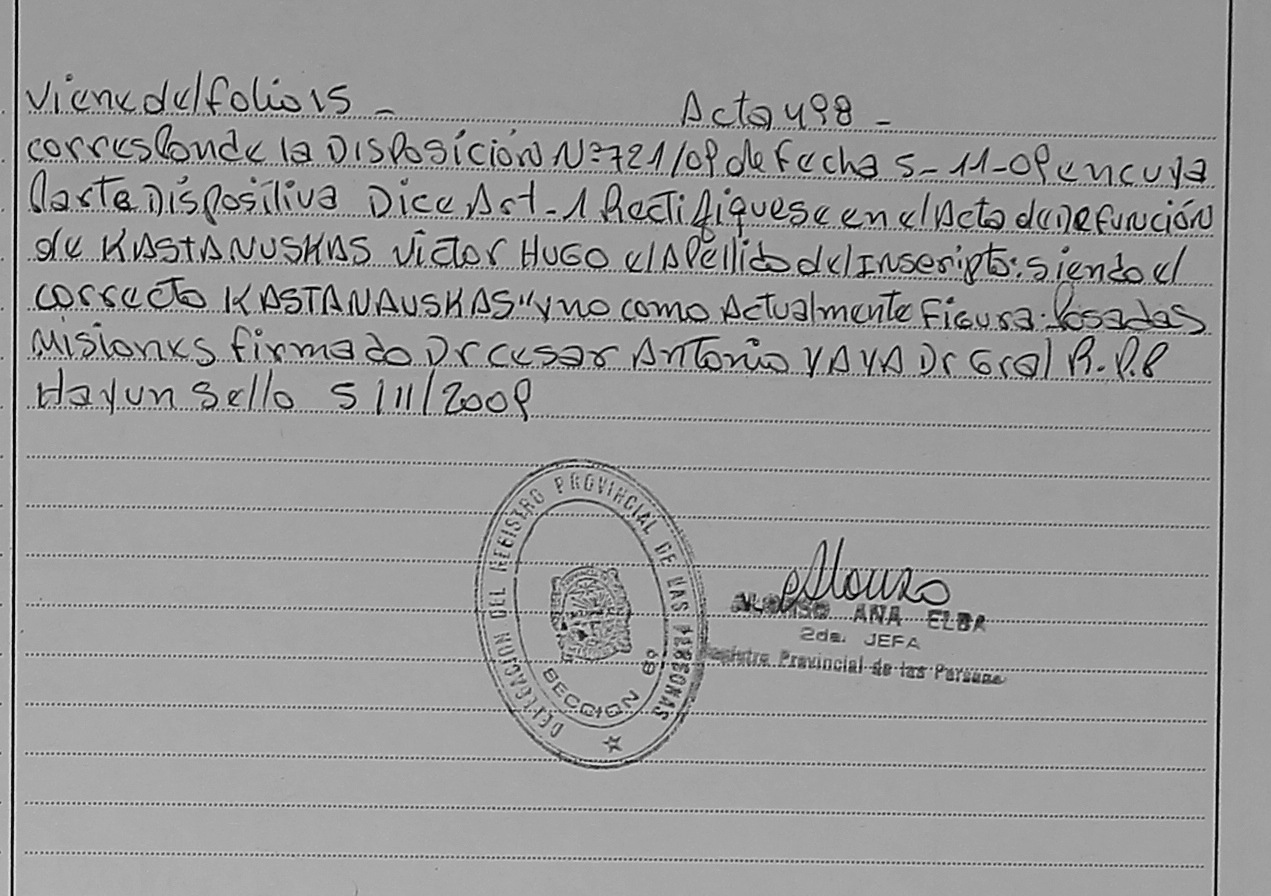 Viene del folio 15 - Acta 498 -
corresponde la Disposición Nº 721/09 de fecha 5-11-09 en cuya
Parte Dispositiva Dice Art-1 Rectifiquese en el Acta de Defunción
de KASTANUSKAS Victor HUGO el Apellido del Inscripto: siendo el
correcto KASTANAUSKAS" y no como Actualmente Figura. Posadas
Misiones firmado Dr Cesar Antonio YAYA Dr Gral R.P.P
Hay un Sello 5/11/2009
DELEGACION DEL REGISTRO PROVINCIAL DE LAS PERSONAS
SECCION 8º
ALONSO ANA ELBA
2da. JEFA
Registro Provincial de las Persona